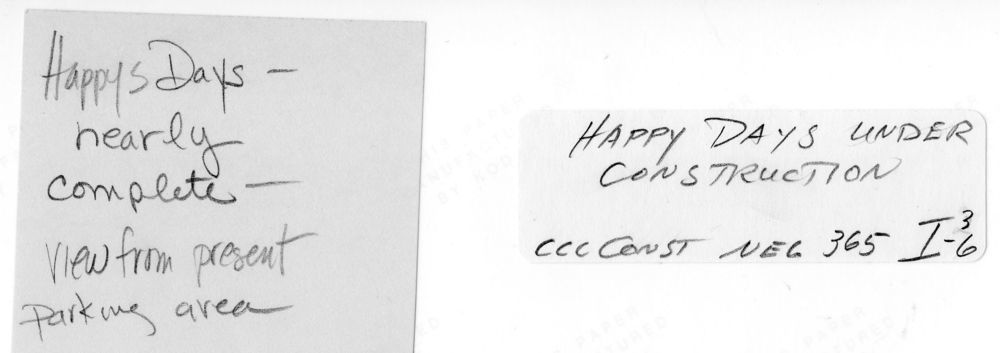 Happys Days —
nearly
complete —
view from present
parking area
HAPPY DAYS UNDER
CONSTRUCTION
CCC CONST NEG 365 I-3/6